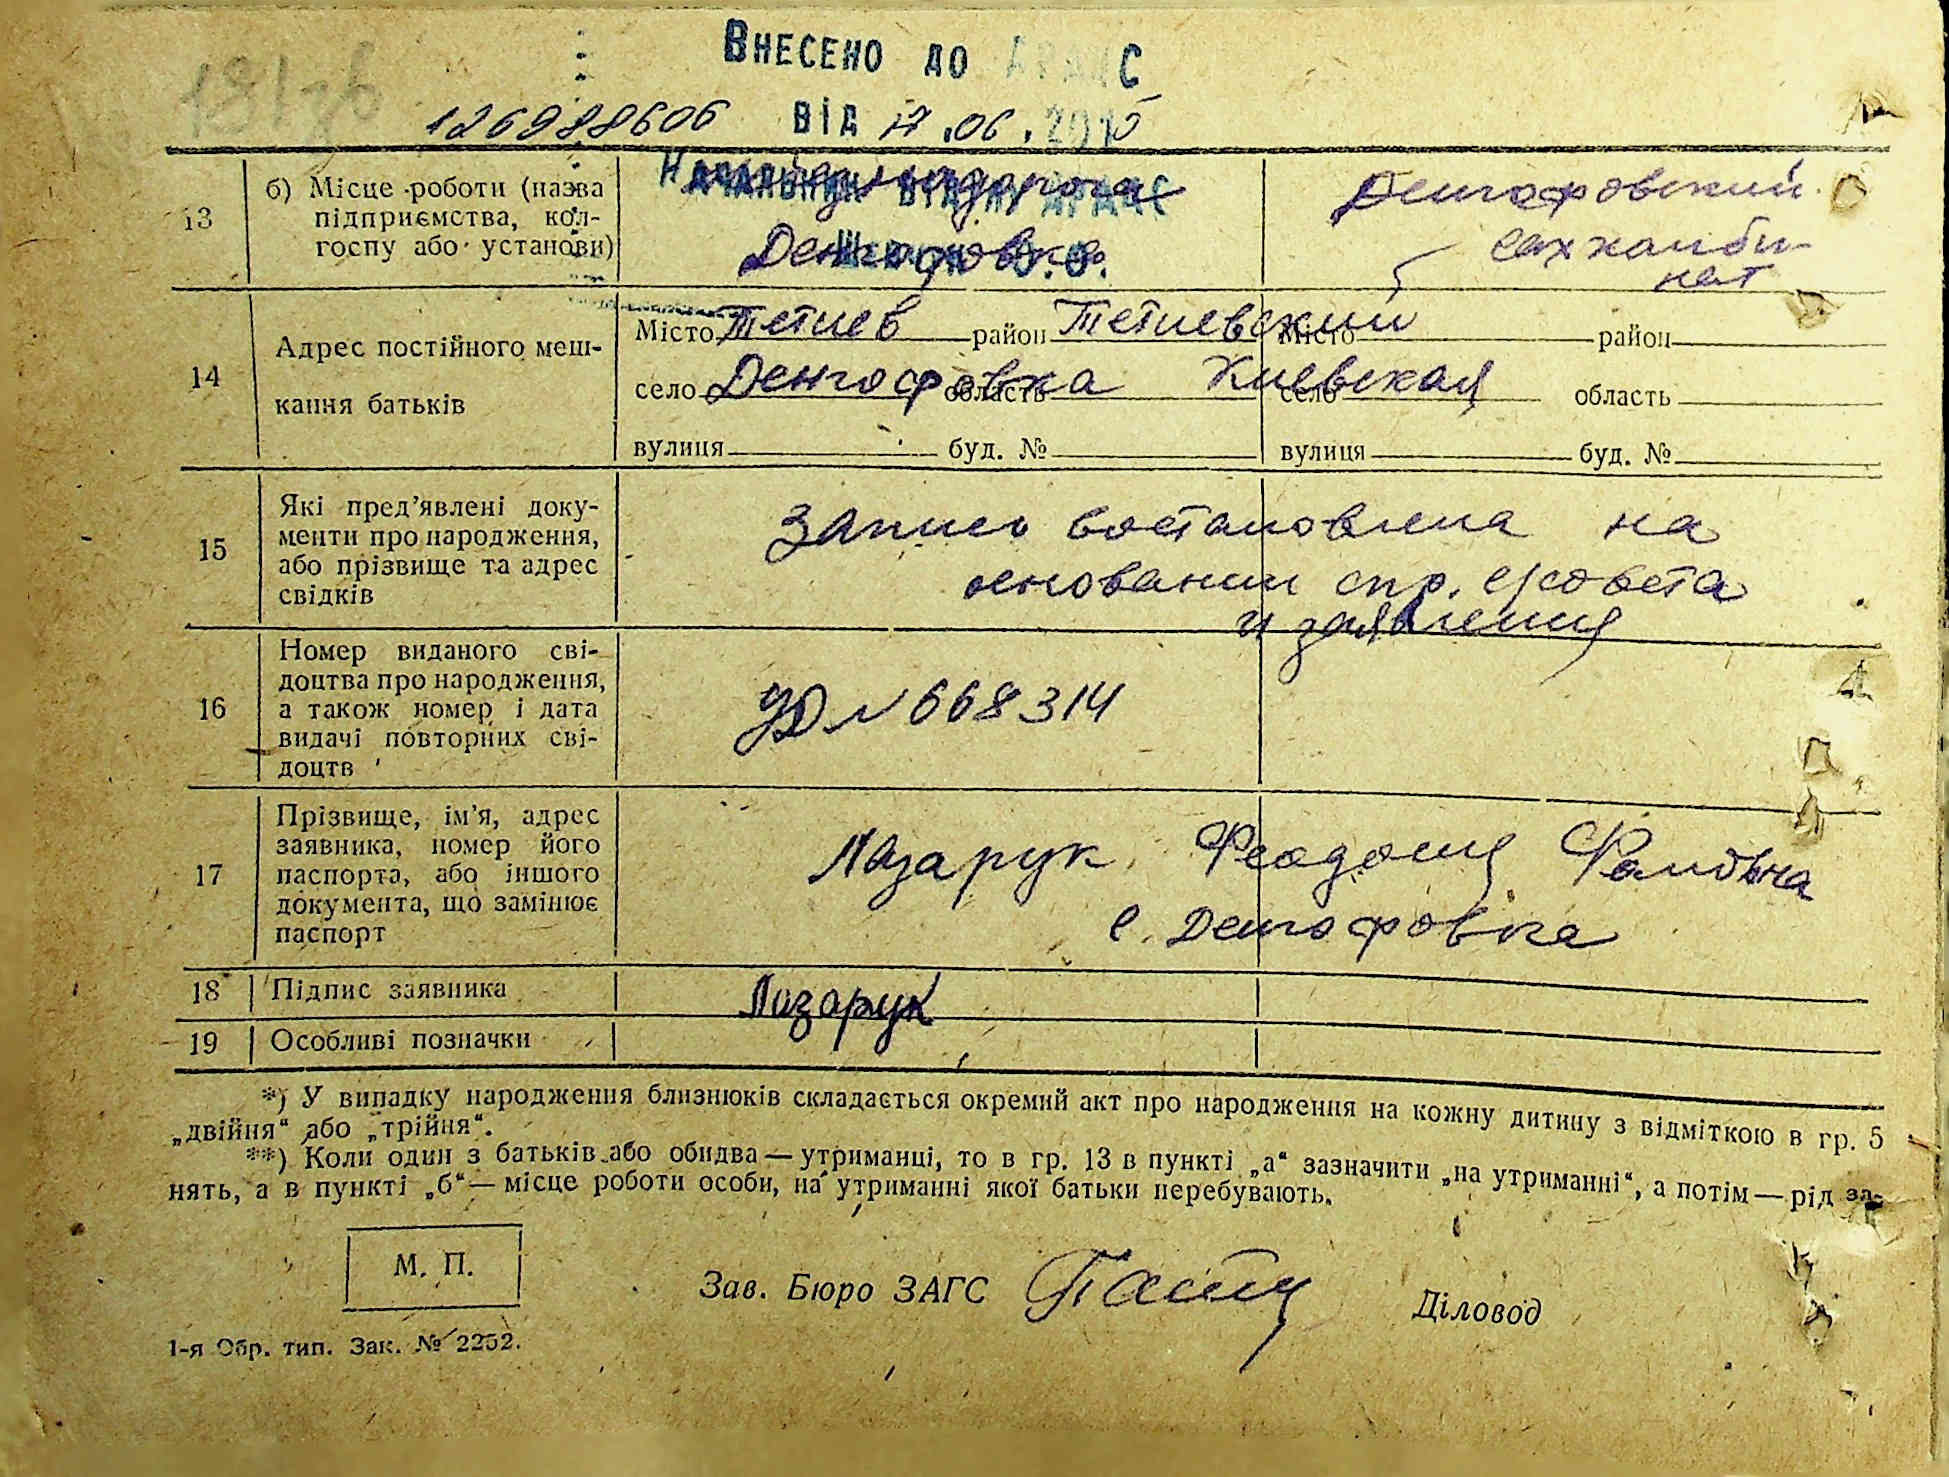 131зв
Внесено до ДРАЦС
126988606 від 17.06.2015
Начальник відділу ДРАЦС
13
б) Місце роботи (назва
підприємства, кол-
госпу або установи)
Денгофовка
Денгофовский
сахкомби-
нат
14
Адрес постійного меш-
кання батьків
Місто Тетиев район Тетиевский Місто район
село Денгофовка область Киевская село область
вулиця буд. № вулиця буд. №
15
Які пред’явлені доку-
менти про народження,
або прізвище та адрес
свідків
Запись востановлена на
основании спр. с/совета
и заявления
16
Номер виданого сві-
доцтва про народження,
а також номер і дата
видачі повторних сві-
доцтв
УД № 668314
17
Прізвище, ім’я, адрес
заявника, номер його
паспорта, або іншого
документа, що замінює
паспорт
Лазарук Феодосия Фомовна
с. Денгофовка
18 Підпис заявника
Лазарук
19 Особливі позначки
*) У випадку народження близнюків складається окремий акт про народження на кожну дитину з відміткою в гр. 5
„двійня“ або „трійня“.
**) Коли один з батьків або обидва — утриманці, то в гр. 13 в пункті „а“ зазначити „на утриманні“, а потім — рід за-
нять, а в пункті „б“ — місце роботи особи, на утриманні якої батьки перебувають.
М. П.
Зав. Бюро ЗАГС
Діловод
1-я Обр. тип. Зак. № 2252.